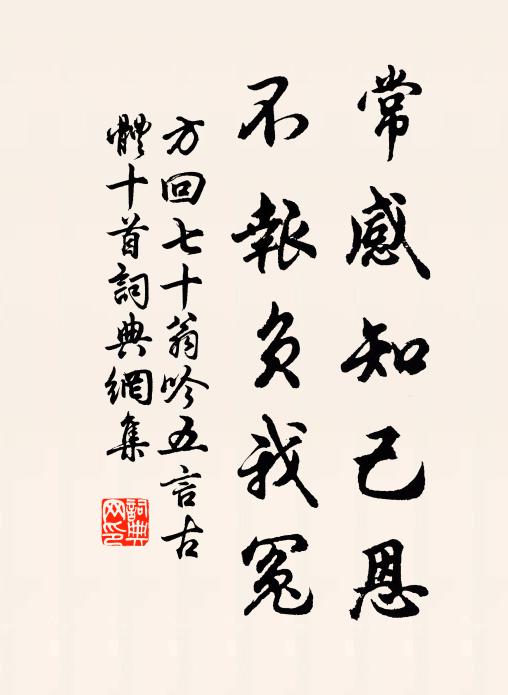 常感知己恩
不報負我冤
方回七十翁吟五言古
體十首詞典網集
詞典
网印